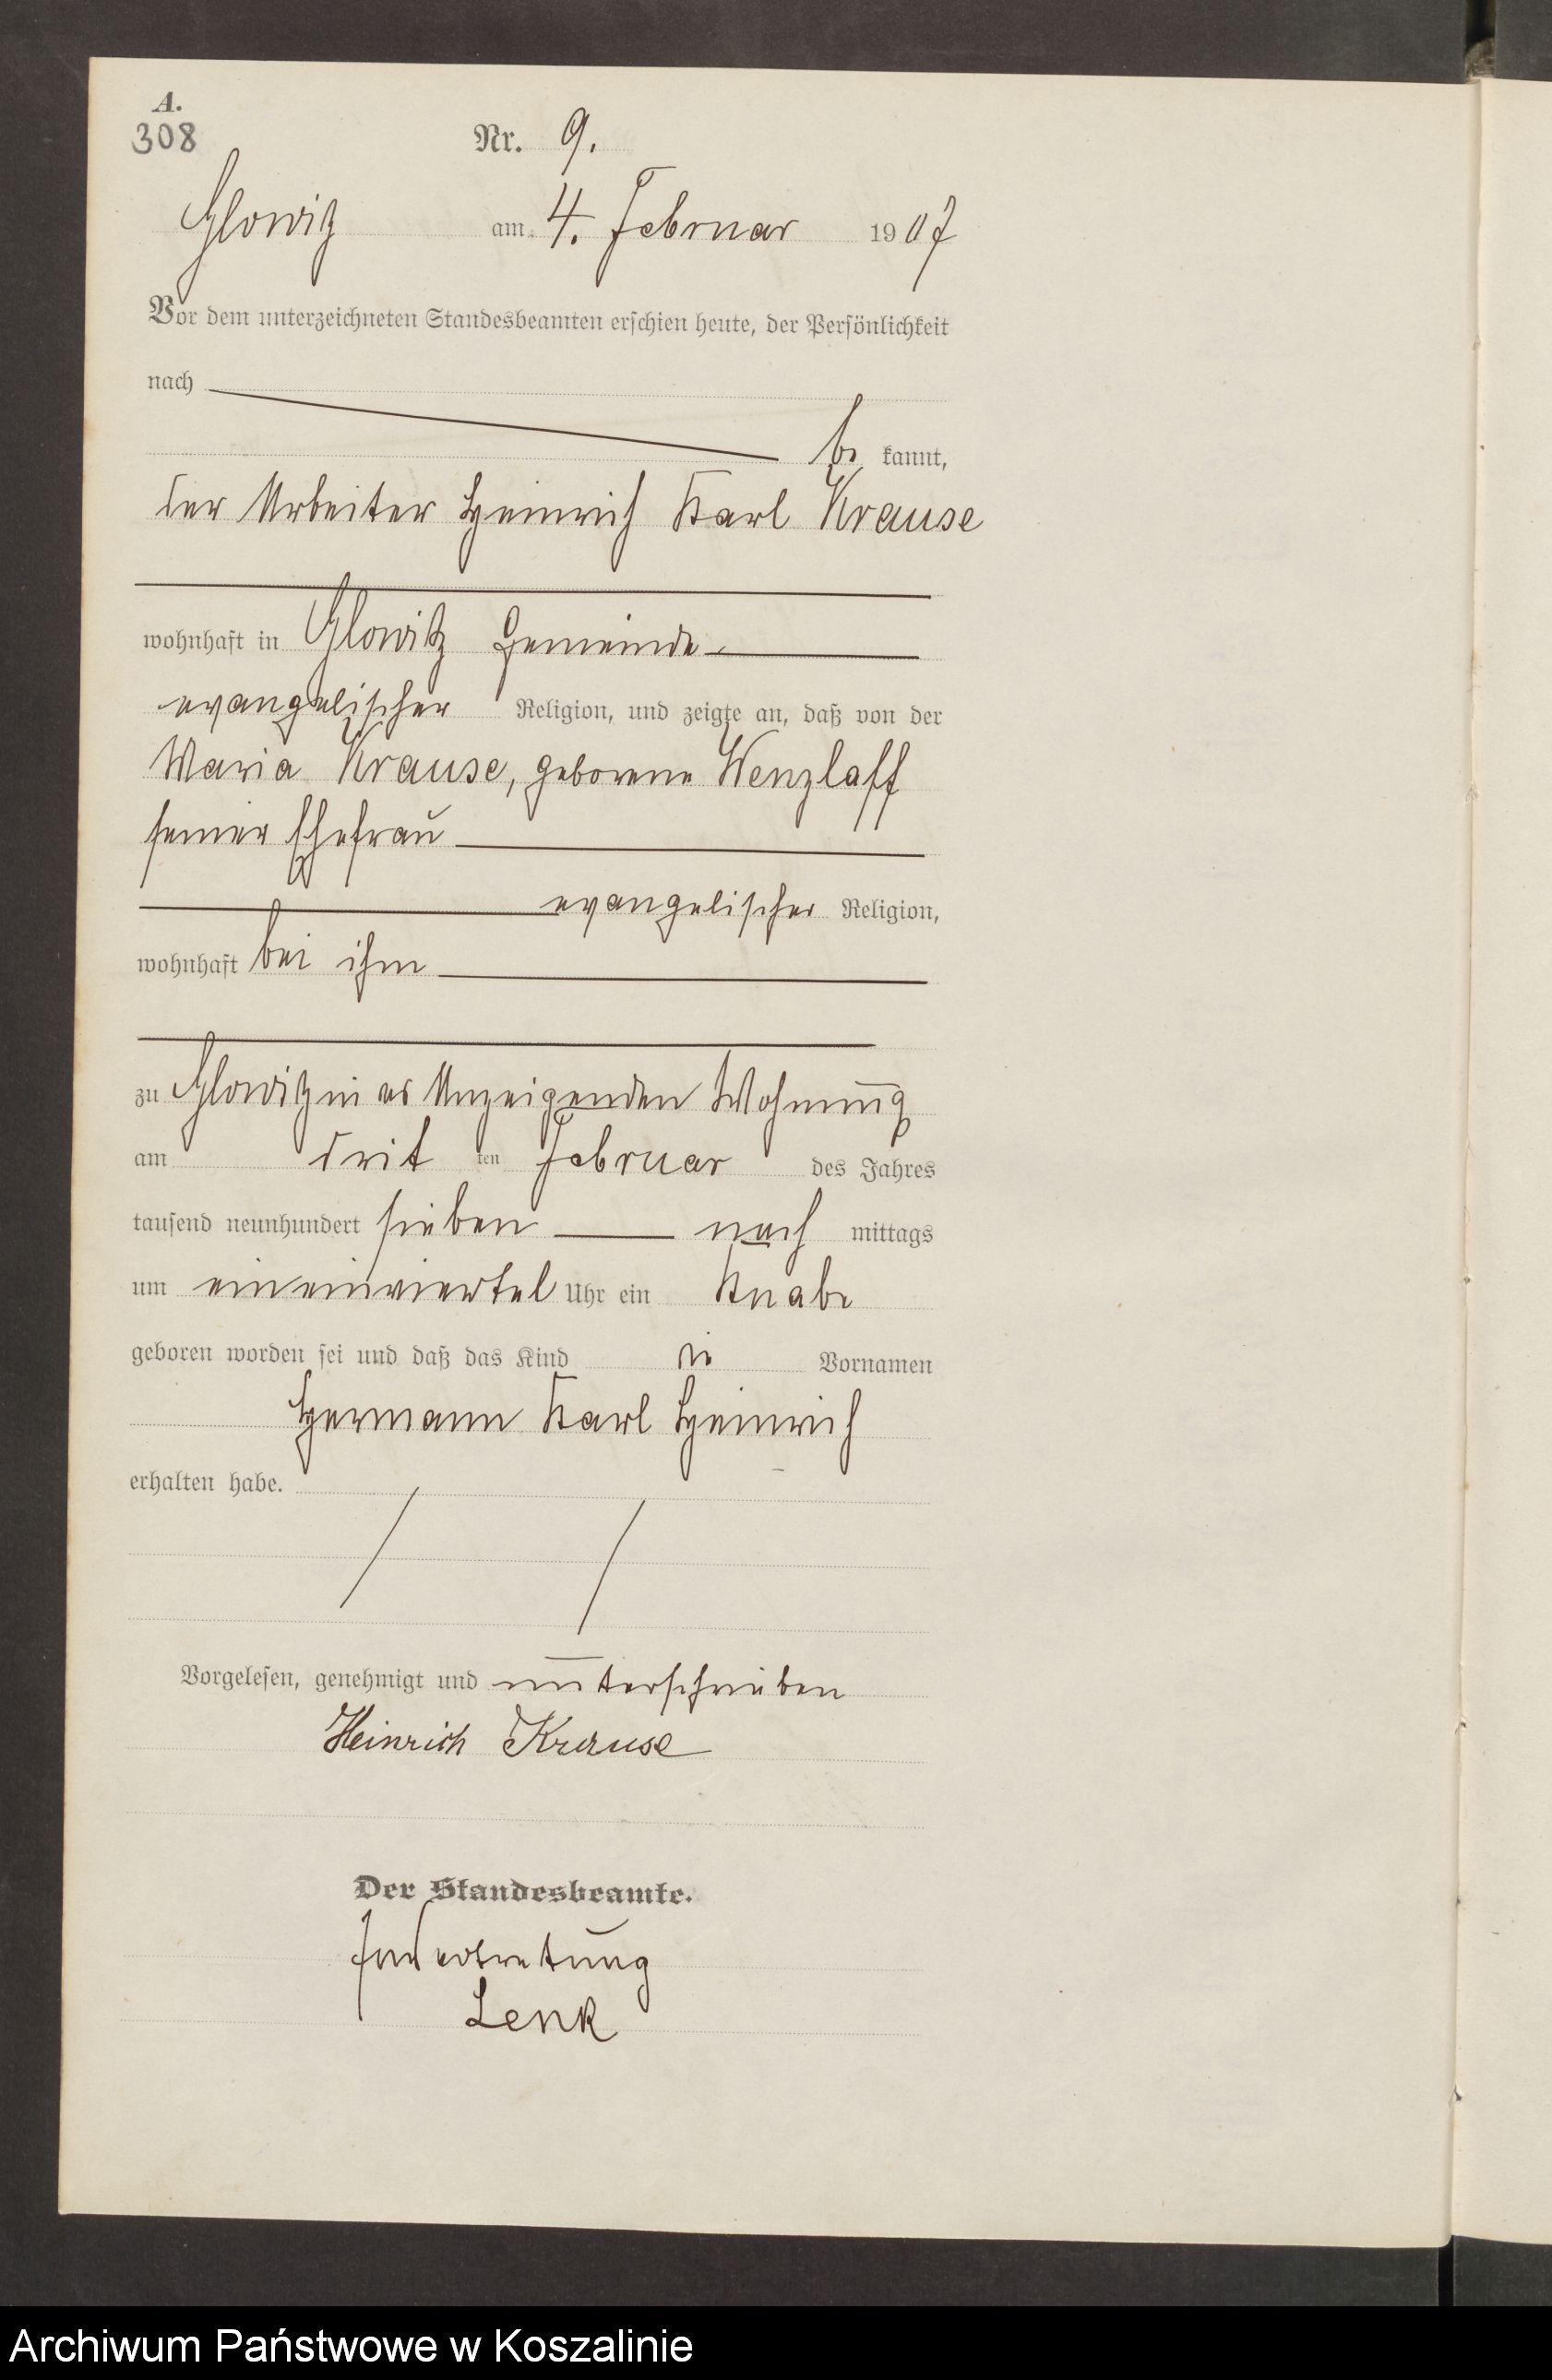 A.
308
Nr. 9.
Glowitz am 4. Februar 1907
Vor dem unterzeichneten Standesbeamten erschien heute, der Persönlichkeit
nach
be kannt,
der Arbeiter Heinrich Karl Krause
wohnhaft in Glowitz Gemeinde
evangelischer Religion, und zeigte an, daß von der
Maria Krause, geborene Wenzlaff
seiner Ehefrau
evangelischer Religion,
wohnhaft bei ihm
zu Glowitz in Anzeigenden Wohnung
am drit ten Februar des Jahres
tausend neunhundert sieben nach mittags
um eineinviertel Uhr ein Knabe
geboren worden sei und daß das Kind die Vornamen
Hermann Karl Heinrich
erhalten habe.
Vorgelesen, genehmigt und unterschrieben
Heinrich Krause
Der Standesbeamte.
In Vertretung
Lenk
Archiwum Państwowe w Koszalinie